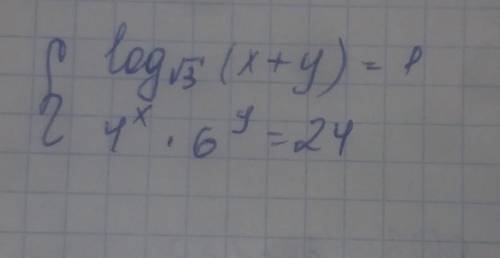 { log_√3 (x+y) = 1
4^x · 6^y = 24